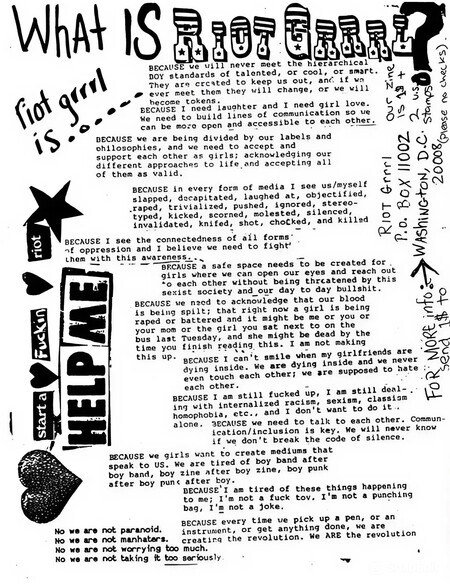 WHAT IS RIOT GRRRL?
riot grrrl
is........
BECAUSE we will never meet the hierarchical
BOY standards of talented, or cool, or smart.
They are created to keep us out, and if we
ever meet them they will change, or we will
become tokens.
BECAUSE I need laughter and I need girl love.
We need to build lines of communication so we
can be more open and accessible to each other.
BECAUSE we are being divided by our labels and
philosophies, and we need to accept and
support each other as girls; acknowledging our
different approaches to life and accepting all
of them as valid.
BECAUSE in every form of media I see us/myself
slapped, decapitated, laughed at, objectified,
raped, trivialized, pushed, ignored, stereo-
typed, kicked, scorned, molested, silenced,
invalidated, knifed, shot, chocked, and killed
BECAUSE I see the connectedness of all forms
of oppression and I believe we need to fight
them with this awareness.
BECAUSE a safe space needs to be created for
girls where we can open our eyes and reach out
to each other without being threatened by this
sexist society and our day to day bullshit.
BECAUSE we need to acknowledge that our blood
is being spilt; that right now a girl is being
raped or battered and it might be me or you or
your mom or the girl you sat next to on the
bus last Tuesday, and she might be dead by the
time you finish reading this. I am not making
this up.
BECAUSE I can't smile when my girlfriends are
dying inside. We are dying inside and we never
even touch each other; we are supposed to hate
each other.
BECAUSE I am still fucked up, I am still deal-
ing with internalized racism, sexism, classism
homophobia, etc., and I don't want to do it
alone.
BECAUSE we need to talk to each other. Commun-
ication/inclusion is key. We will never know
if we don't break the code of silence.
BECAUSE we girls want to create mediums that
speak to US. We are tired of boy band after
boy band, boy zine after boy zine, boy punk
after boy punk after boy.
BECAUSE I am tired of these things happening
to me; I'm not a fuck toy. I'm not a punching
bag, I'm not a joke.
BECAUSE every time we pick up a pen, or an
instrument, or get anything done, we are
creating the revolution. We ARE the revolution
No we are not paranoid.
No we are not manhaters.
No we are not worrying too much.
No we are not taking it too seriously.
start a Fuckin riot
HELP ME
FOR MORE info:
send 1$ to
RIOT Grrrl
P.O. BOX 11002
WASHINGTON, D.C.
20008 (please no checks)
Our zine
is 1$ +
2 us
stamps